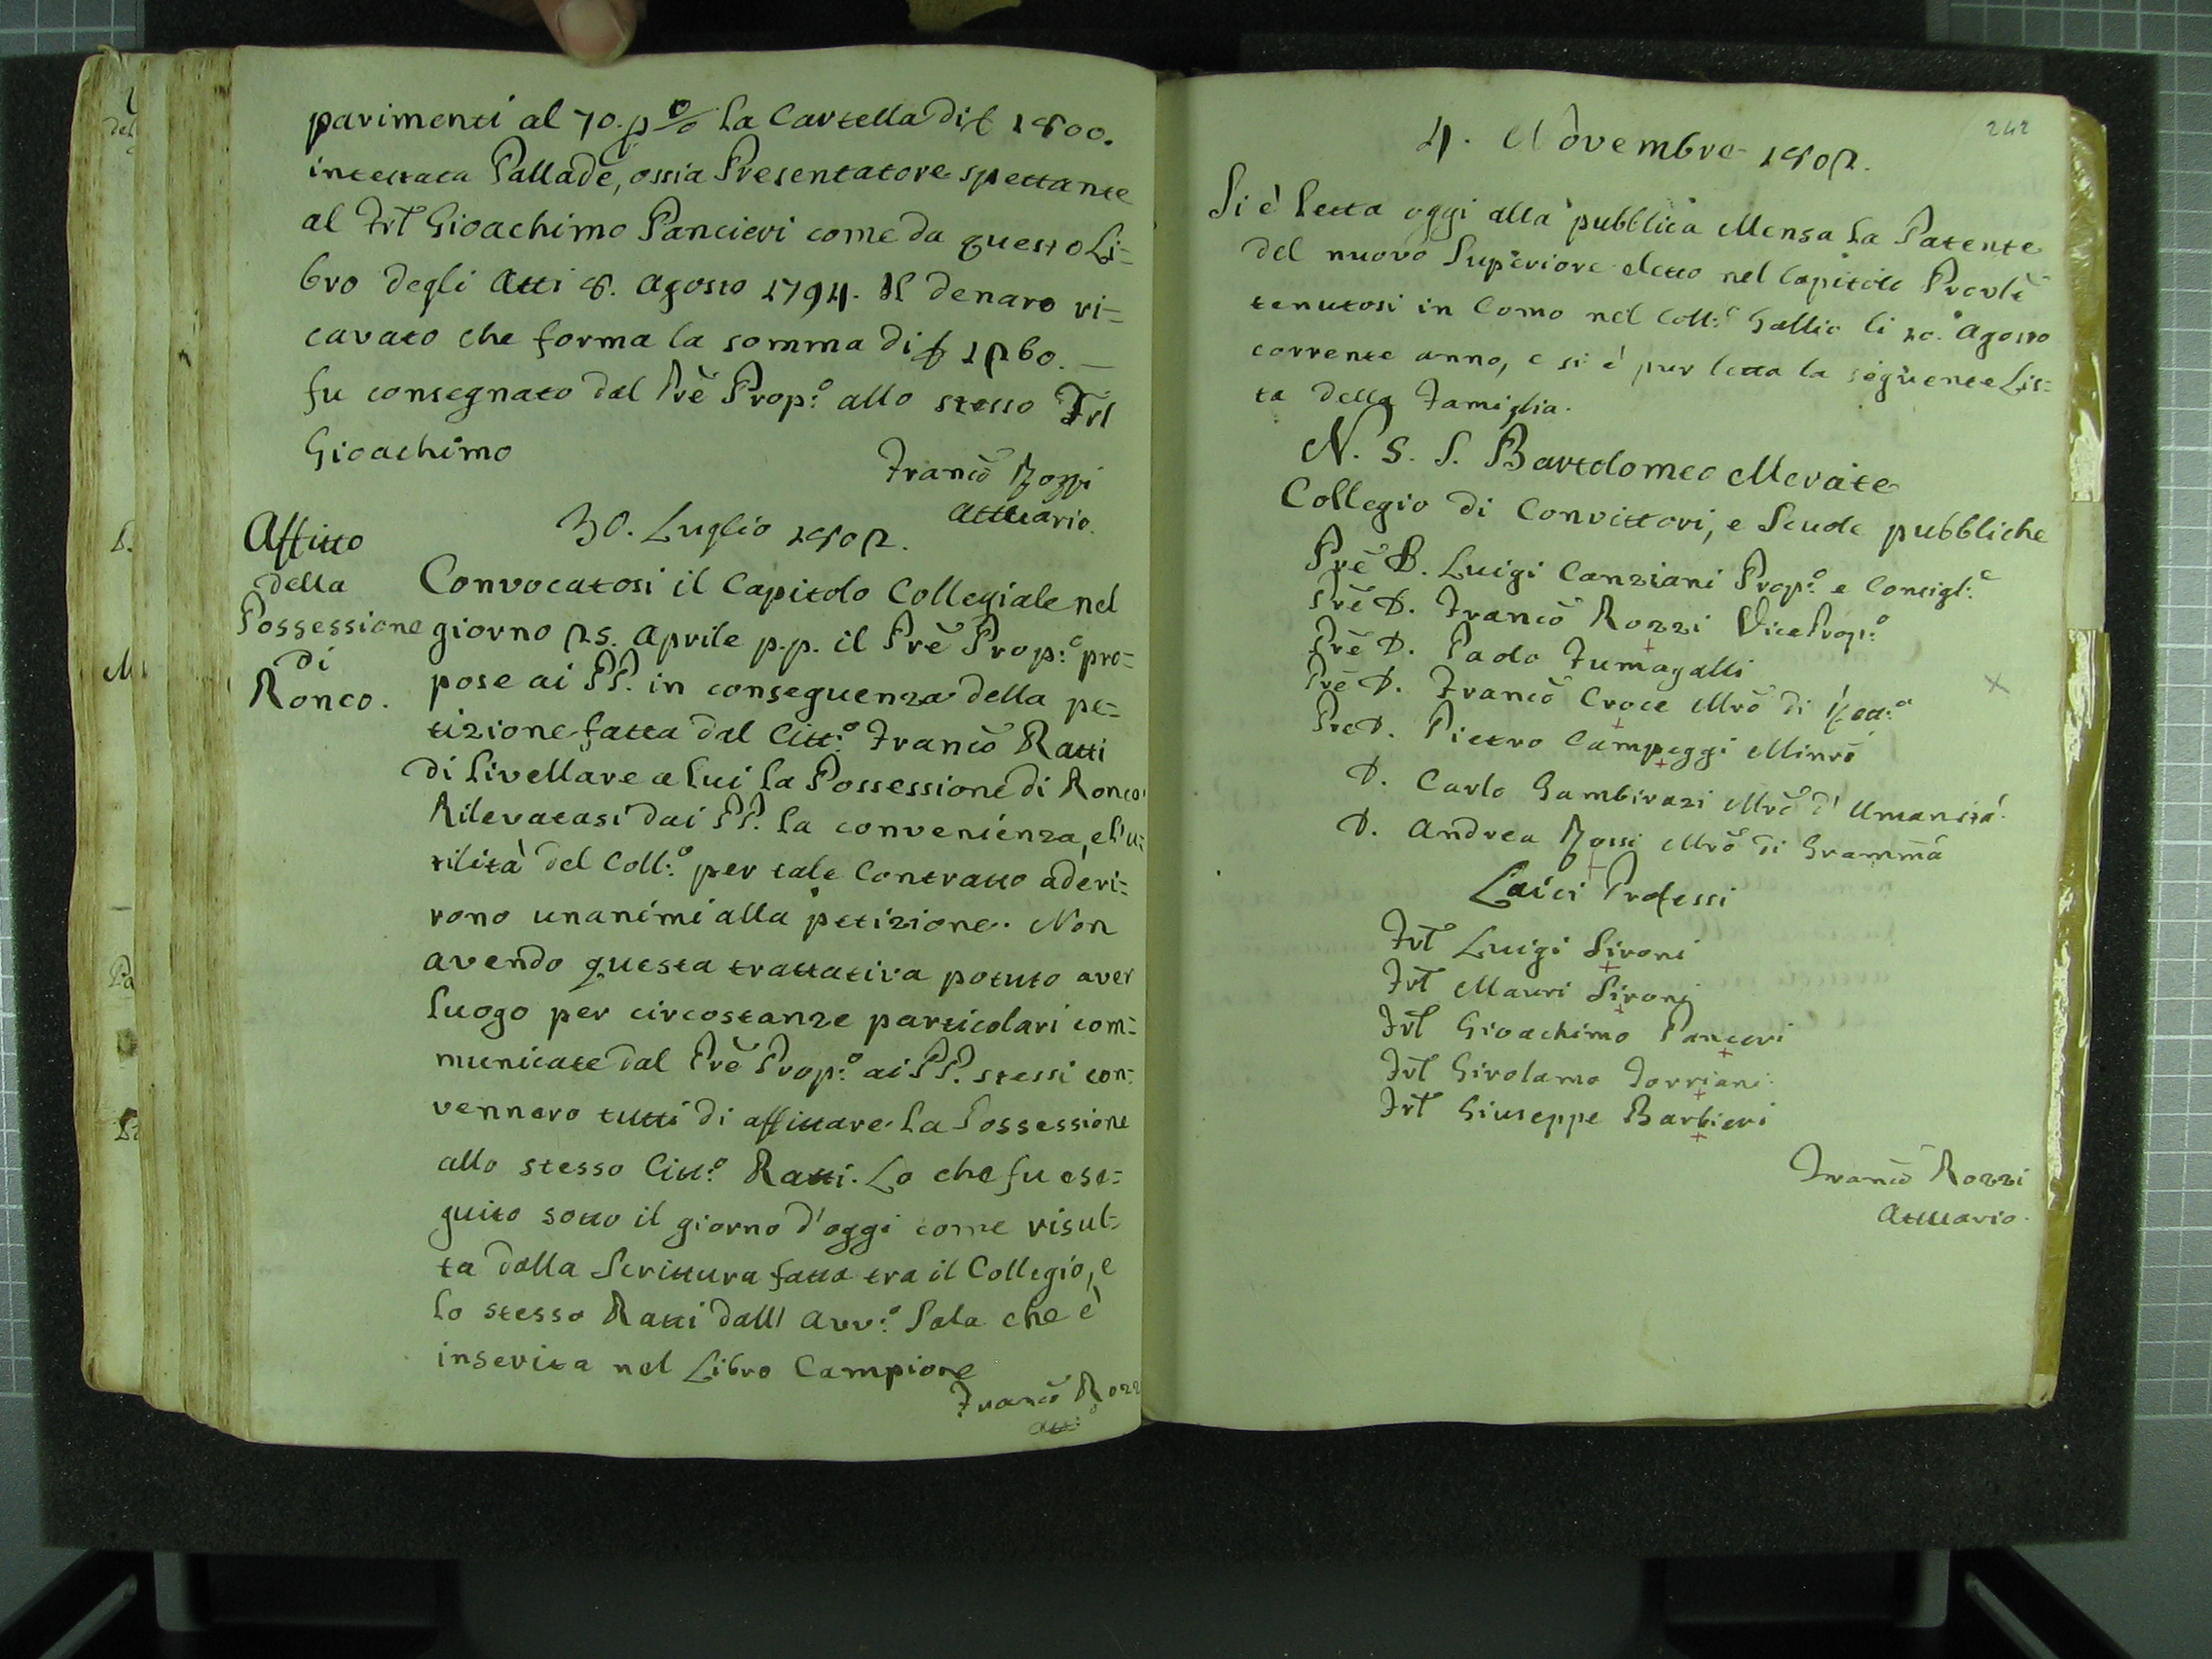 parimenti al 70. p % la Cartella di £ 1800.
intestata Pallade, ossia Presentatore spettante
al Frl̃ Gioachimo Pancieri come da questo Li=
bro degli Atti 8. Agosto 1794. Il denaro ri=
cavato che forma la somma di £ 1260. —
fu consegnato dal Prẽ Prop:º allo stesso Frl̃
Gioachimo
Francõ Rozzi
Attuario.
30. Luglio 1802.
Affitto
della
Possessione
di
Ronco.
Convocatosi il Capitolo Collegiale nel
giorno 25. Aprile p.p. il Prẽ Prop:º pro=
pose ai PP. in conseguenza della pe=
tizione fatta dal Citt:º Francõ Ratti
di livellare a lui la Possessione di Ronco.
Rilevatasi dai PP. la convenienza, e l'u=
tilità del Coll:º per tale Contratto aderi=
rono unanimi alla petizione. Non
avendo questa trattativa potuto aver
luogo per circostanze particolari com=
municate dal Prẽ Prop:º ai PP. stessi con=
vennero tutti di affittare la Possessione
allo stesso Citt:º Ratti. Lo che fu ese=
guito sotto il giorno d'oggi come risul=
ta dalla Scrittura fatta tra il Collegio, e
lo stesso Ratti dall' Avv:º Sala che è
inserita nel Libro Campione
Francõ Rozz
Att:º
242
4. Novembre 1802.
Si è letta oggi alla pubblica Mensa la Patente
del nuovo Superiore eletto nel Capitolo Provlẽ
tenutosi in Como nel Coll:º Gallio li 20. Agosto
corrente anno, e si è pur letta la seguente Lis=
ta della Famiglia.
N. S. S. Bartolomeo Merate
Collegio di Convittori, e Scuole pubbliche
Prẽ D. Luigi Canziani Prop:º e Consigl:e
Prẽ D. Francõ Rozzi Vice Prop:º
Prẽ D. Paolo Fumagalli
Prẽ D. Francõ Croce Mrõ di Ret:ª
Pre D. Pietro Campeggi Minrẽ
D. Carlo Gambirazi Mrõ d' Umanità.
D. Andrea Rossi Mrõ di Grammã
Laici Professi
Frl̃ Luigi Sironi
Frl̃ Mauri Sironi
Frl̃ Gioachimo Panceri
Frl̃ Girolamo Torriani
Frl̃ Giuseppe Barbieri
Francõ Rozzi
Attuario.